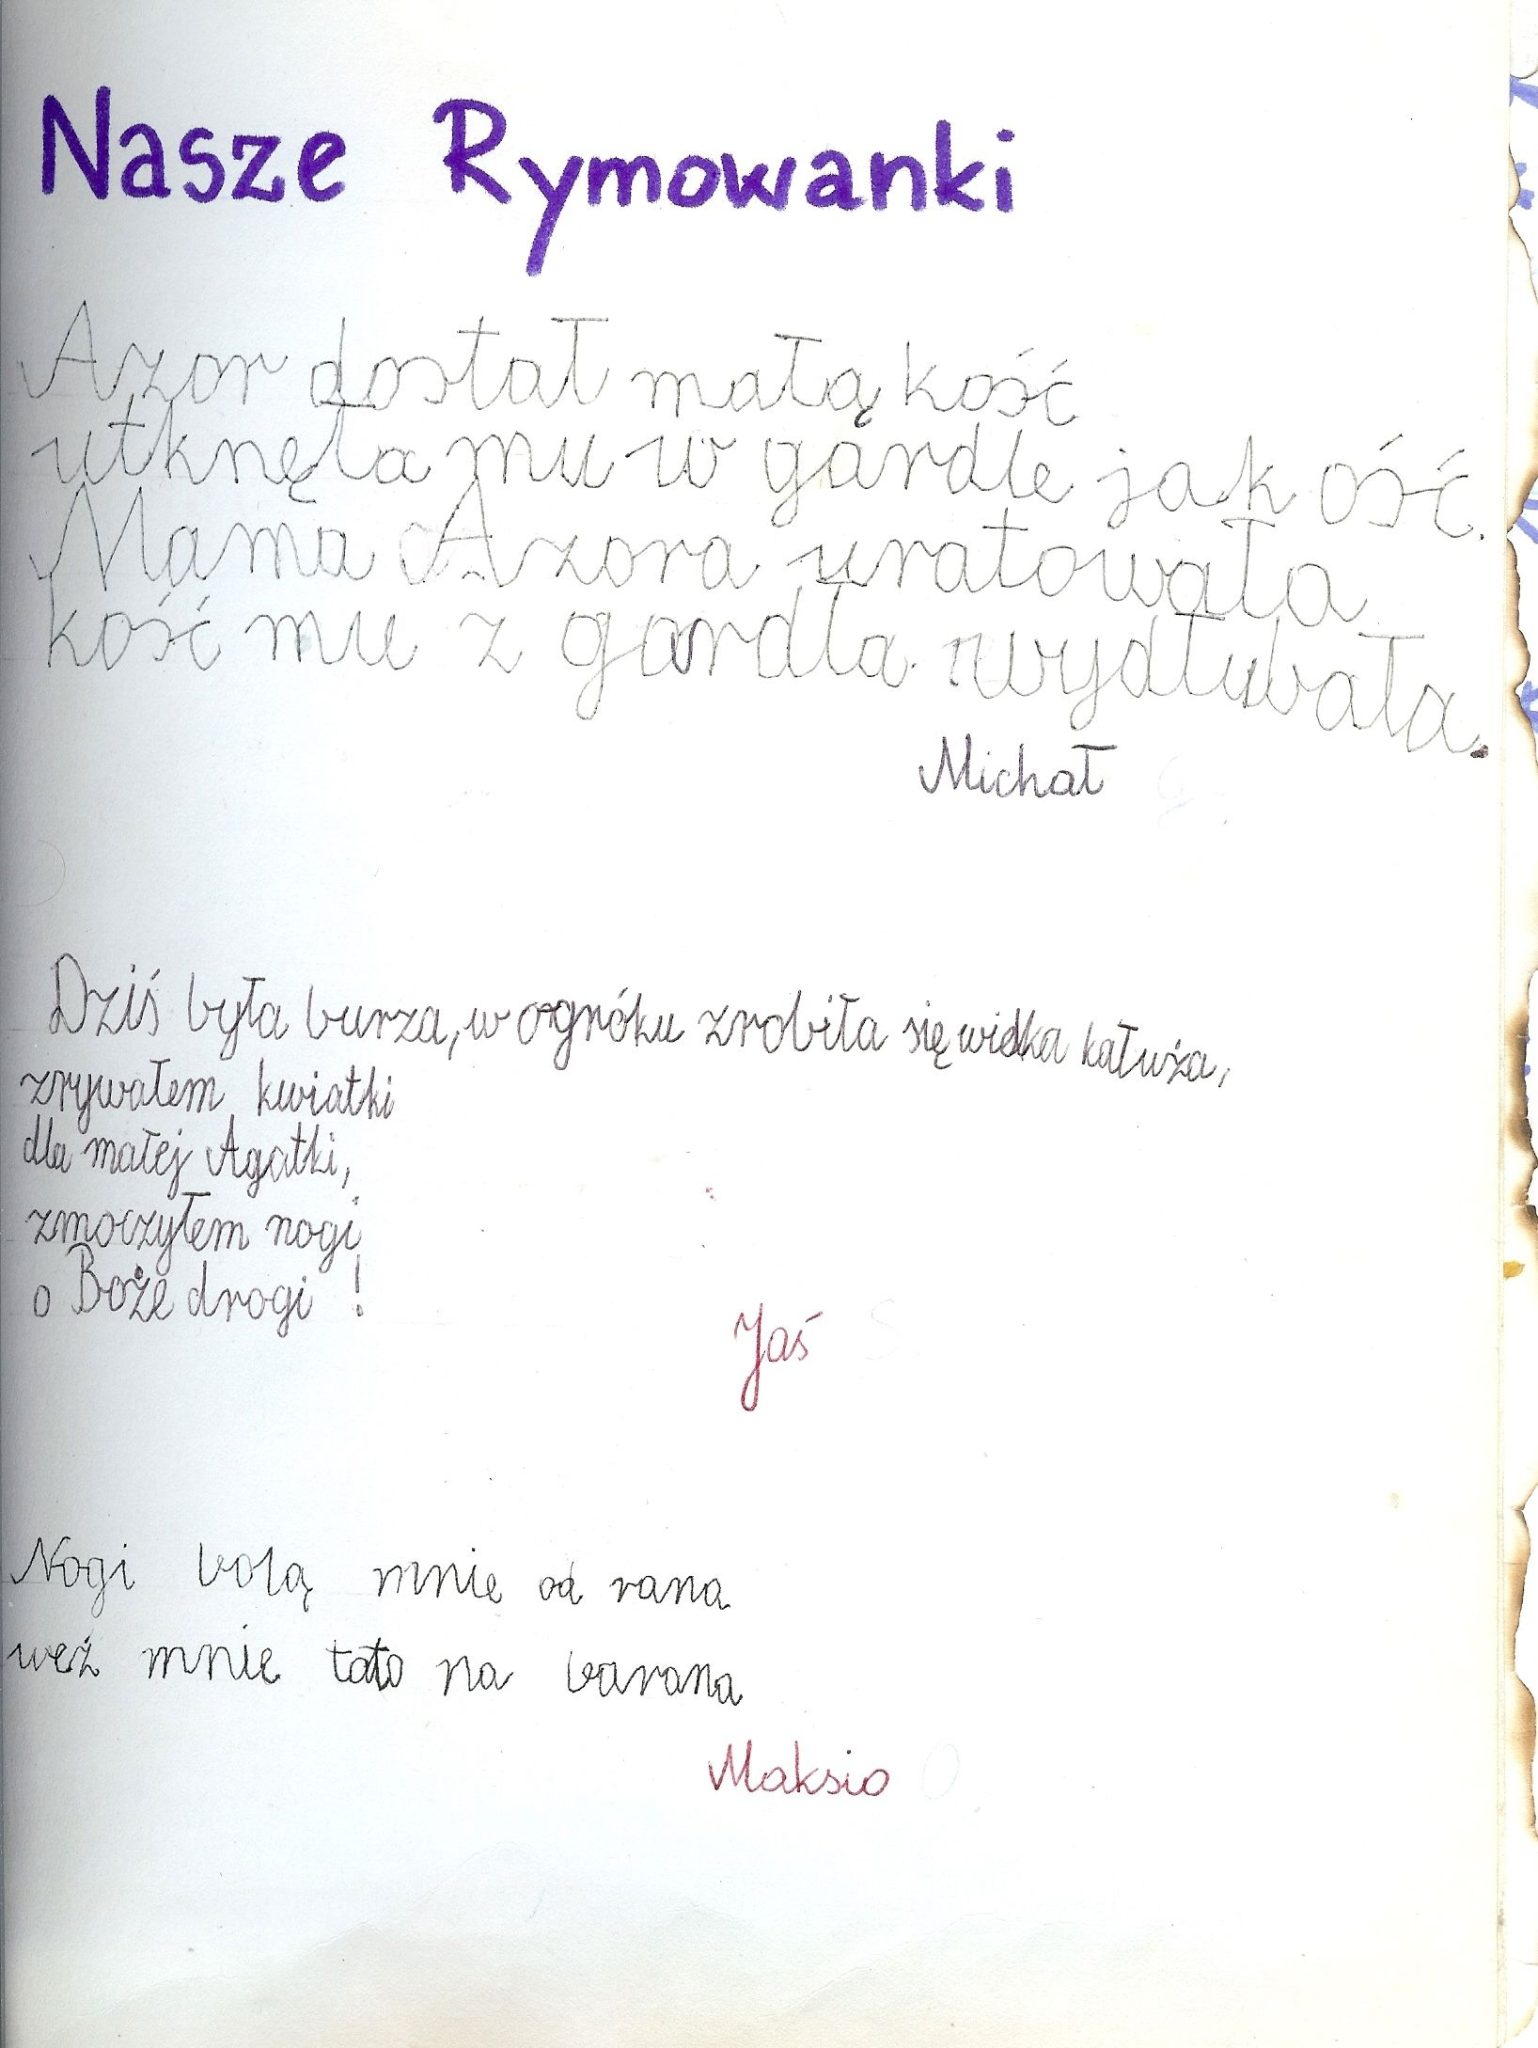 Nasze Rymowanki
Azor dostał małą kość
utknęła mu w gardle jak ość.
Mama Azora uratowała
kość mu z gardła wydłubała.
Michał
Dziś była burza, w ogróku zrobiła się wielka kałuża,
zrywałem kwiatki
dla małej Agatki,
zmoczyłem nogi
o Boże drogi!
Jaś
Nogi bolą mnie od rana
weź mnie tato na barana
Maksio